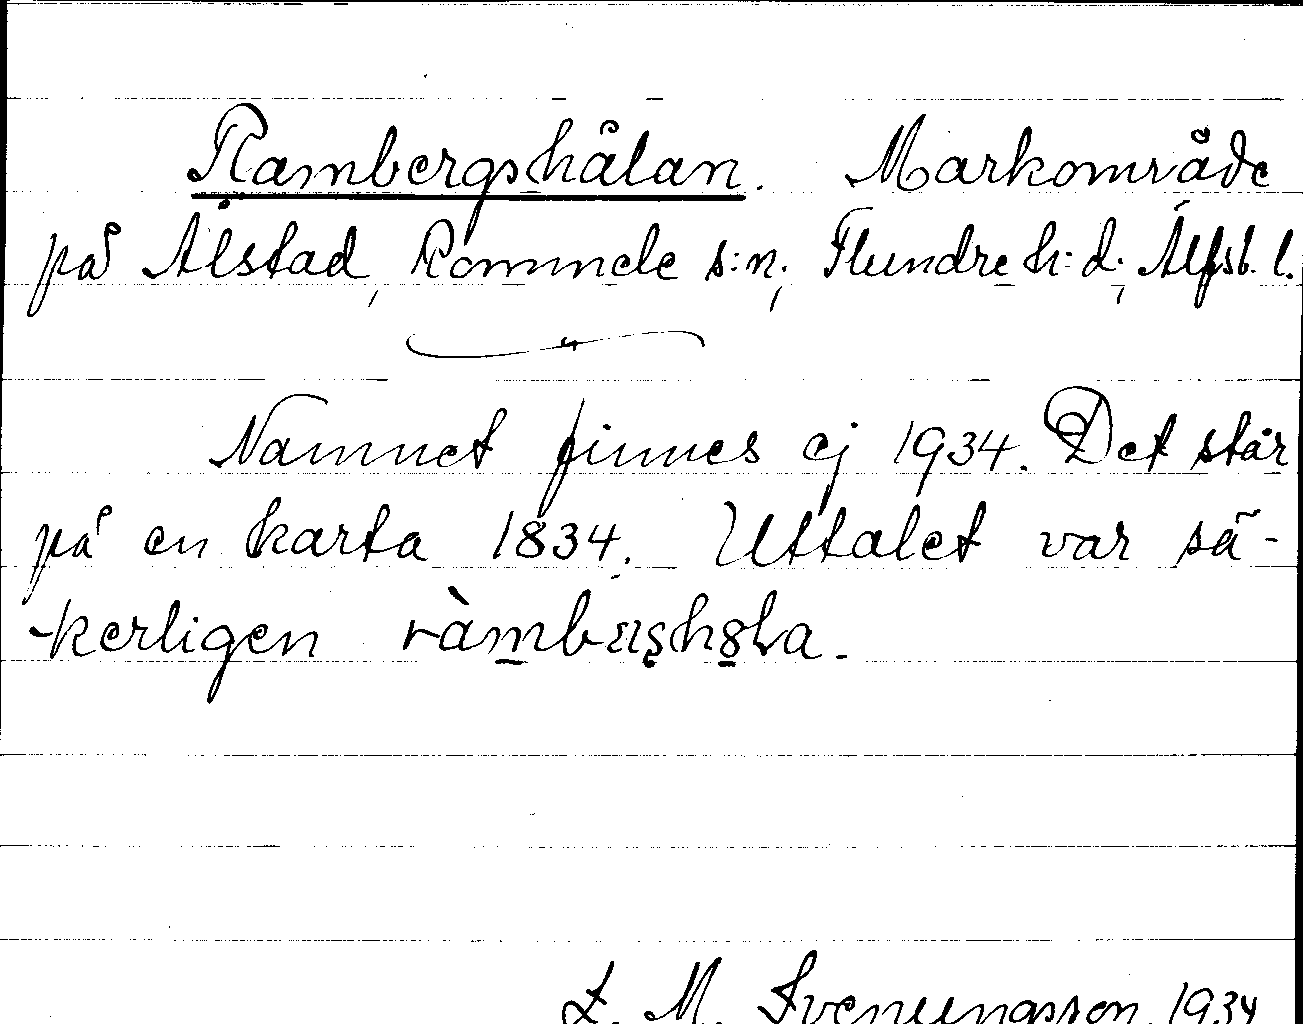 Rambergshålan. Markområde
på Ålstad, Rommele s:n, Flundre h:d, Älfsb. l.
Namnet finnes ej 1934. Det står
på en karta 1834. Uttalet var sä-
kerligen
L. M. Svenungsson 1934